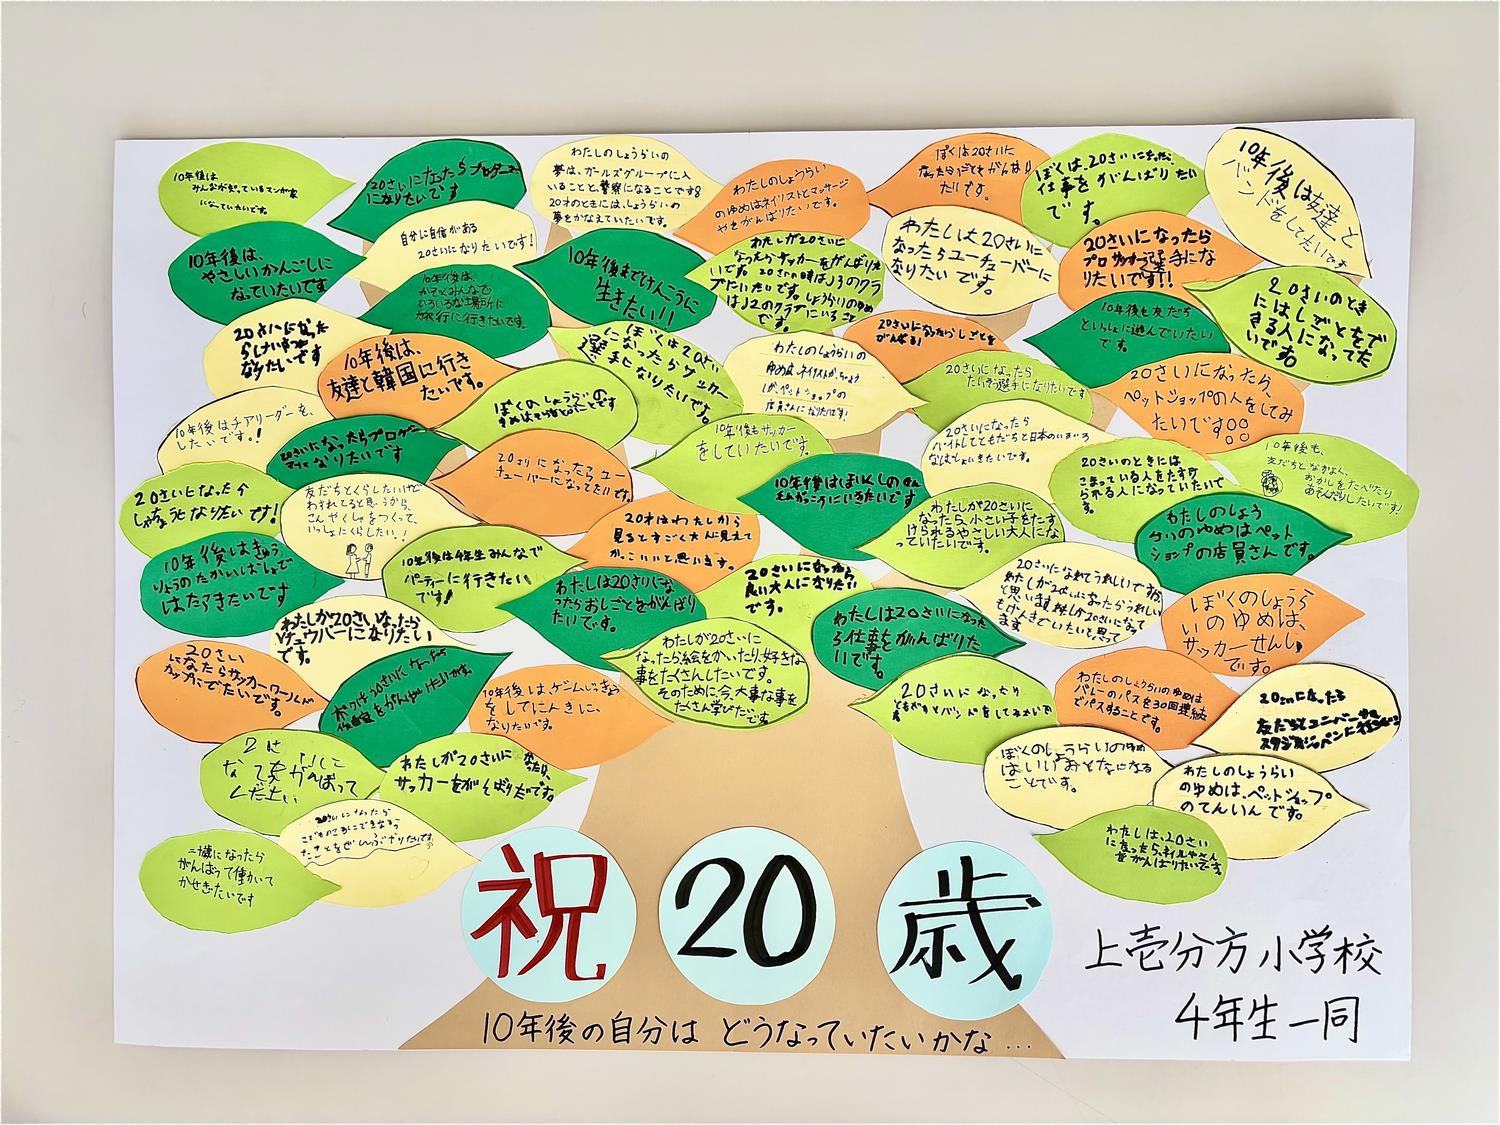 10年後は
みんなが知っているマンガ家
になっていたいです。
20さいになったらプロゲーマー
になりたいです
わたしのしょうらいの
夢は、ガールズグループに入
ることと、警察になることです。
20才のときには、しょうらいの
夢をかなえていたいです。
わたしのしょうらい
のゆめはネイリストとマッサージ
やをがんばりたいです。
ぼくは20さいに
なったらしごとをがんばり
たいです。
ぼくは、20さいになったら、
仕事をがんばりたい
です。
10年後は友達と
バンドをしてたいです
10年後は、
やさしいかんごしに
なっていたいです
自分に自信がある
20さいになりたいです!
10年後は、
かぞくみんなで
いろいろな場所に
旅行に行きたいです。
10年後までけんこうに
生きたい!!
わたしが20さいに
なったらサッカーをがんばりた
いです。
わたしは20さいに
なったらユーチューバーに
なりたいです。
20さいになったら
プロサッカー選手にな
りたいです!!
10年後も友だち
といっしょに遊んでいたい
です。
20さいのとき
にはしごとをで
きる人になってた
いです。
20さいになった
らけいさつに
なりたいです
10年後は、
友達と韓国に行き
たいです。
ぼくは20さい
になったらサッカー
選手になりたいです。
わたしのしょうらいの
20さいになったらしごとを
がんばる!
20さいになったら
たいそう選手になりたいです
20さいになったら、
ペットショップの人をしてみ
たいです。
10年後はチアリーダーを、
したいです。!
20さいになったらプロゲー
マーになりたいです
ぼくのしょうらいの
20さいになったら、ユー
チューバーになってたいです。
10年後もサッカー
をしていたいです。
20さいになったら
バイトしてともだちと日本のいろいろ
なばしょにいきたいです。
20さいのときには
こまっている人をたすけ
られる人になっていたいで
す。
10年後も、
友だちとなかよく、
おかしをたべたり
あそんだりしたいです!
20さいになったら
しゃちょうになりたいです!
友だちとくらしたいけど
わすれてると思うから、
こんやくしゃをつくって、
いっしょにくらしたい!
20才はわたしから
見るとすごく大人に見えて
かっこいいと思います。
わたしが20さいに
なったら、小さい子をたす
けられるやさしい大人にな
っていたいです。
わたしのしょう
らいのゆめはペット
ショップの店員さんです。
10年後はきゅう
りょうのたかいばしょで
はたらきたいです
10年後は4年生みんなで
パーティーに行きたい
です!
わたしは20さいにな
ったらおしごとをがんばり
たいです。
20さいになったら
良い大人になりたい
です。
わたしは20さいになった
ら仕事をがんばりた
いです。
ぼくのしょうら
いのゆめは、
サッカーせんしゅ
です。
わたしが20さいになったら
Vチュウバーになりたい
です。
20さい
になったらサッカーワールド
カップにでたいです。
ぼくは20さいになったら
10年後は、ゲームじっきょう
をしてにんきに、
なりたいです。
わたしが20さいに
なったら絵をかいたり、好きな
事をたくさんしたいです。
そのために、今、大事な事を
たくさん学びたいです
20さいになったら
ともだちとバンドをしてみたいで
す
わたしのしょうらいのゆめは
バレーのパスを30回連続
でパスすることです。
20さいになったら
友だちとユニバーサル
スタジオジャパンに行きたい
わたしが20さいになったら、
サッカーをがんばりたいです。
ぼくのしょうらいのゆめ
はいいおとなになる
ことです。
わたしのしょうらい
のゆめは、ペットショップ
のてんいんです。
二十歳になったら
がんばって働いて
かせぎたいです
20さいになったら
わたしは、20さい
になったら、ネイルやさん
をがんばりたいです。
祝 20 歳
10年後の自分は どうなっていたいかな…
上壱分方小学校
4年生一同